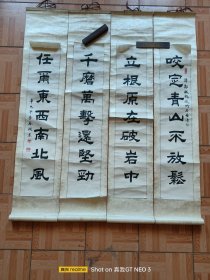 咬定青山不放鬆
立根原在破岩中
千磨萬擊還堅勁
任爾東西南北風
realme Shot on 真我GT NEO 3